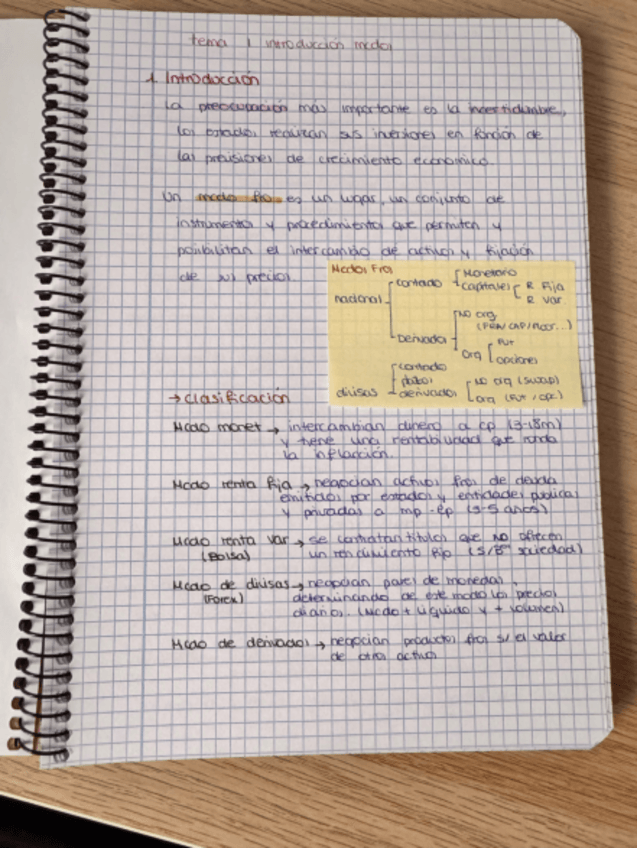 tema 1 introducción mcdos
1. Introducción
La preocupación más importante es la incertidumbre,
los estados realizan sus inversiones en función de
las previsiones de crecimiento económico.
Un mcdo fro es un lugar, un conjunto de
instrumentos y procedimientos que permiten y
posibilitan el intercambio de activos y fijación
de sus precios.
Mcdos Fros
nacional
contado
Monetario
capitales
R Fija
R var.
Derivados
NO org
(FRA/CAP/FLOOR...)
Org
FUT
opciones
divisas
contado
plazos
derivados
NO org (SWAP)
Org (FUT / OPC)
→ clasificación
Mcdo monet → intercambian dinero a cp (3-18m)
y tiene una rentabilidad que ronda
la inflacción.
Mcdo renta fija → negocian activos fros de deuda
emitidos por estados y entidades públicas
y privadas a mp-lp (3-5 años)
Mcdo renta var → se contratan títulos que NO ofrecen
(Bolsa) un rendimiento fijo (s/Bº sociedad)
Mcdo de divisas → negocian pares de monedas,
(Forex) determinando de este modo los precios
diarios. (Mcdo + líquido y + volumen)
Mcdo de derivados → negocian productos fros s/ el valor
de otro activo